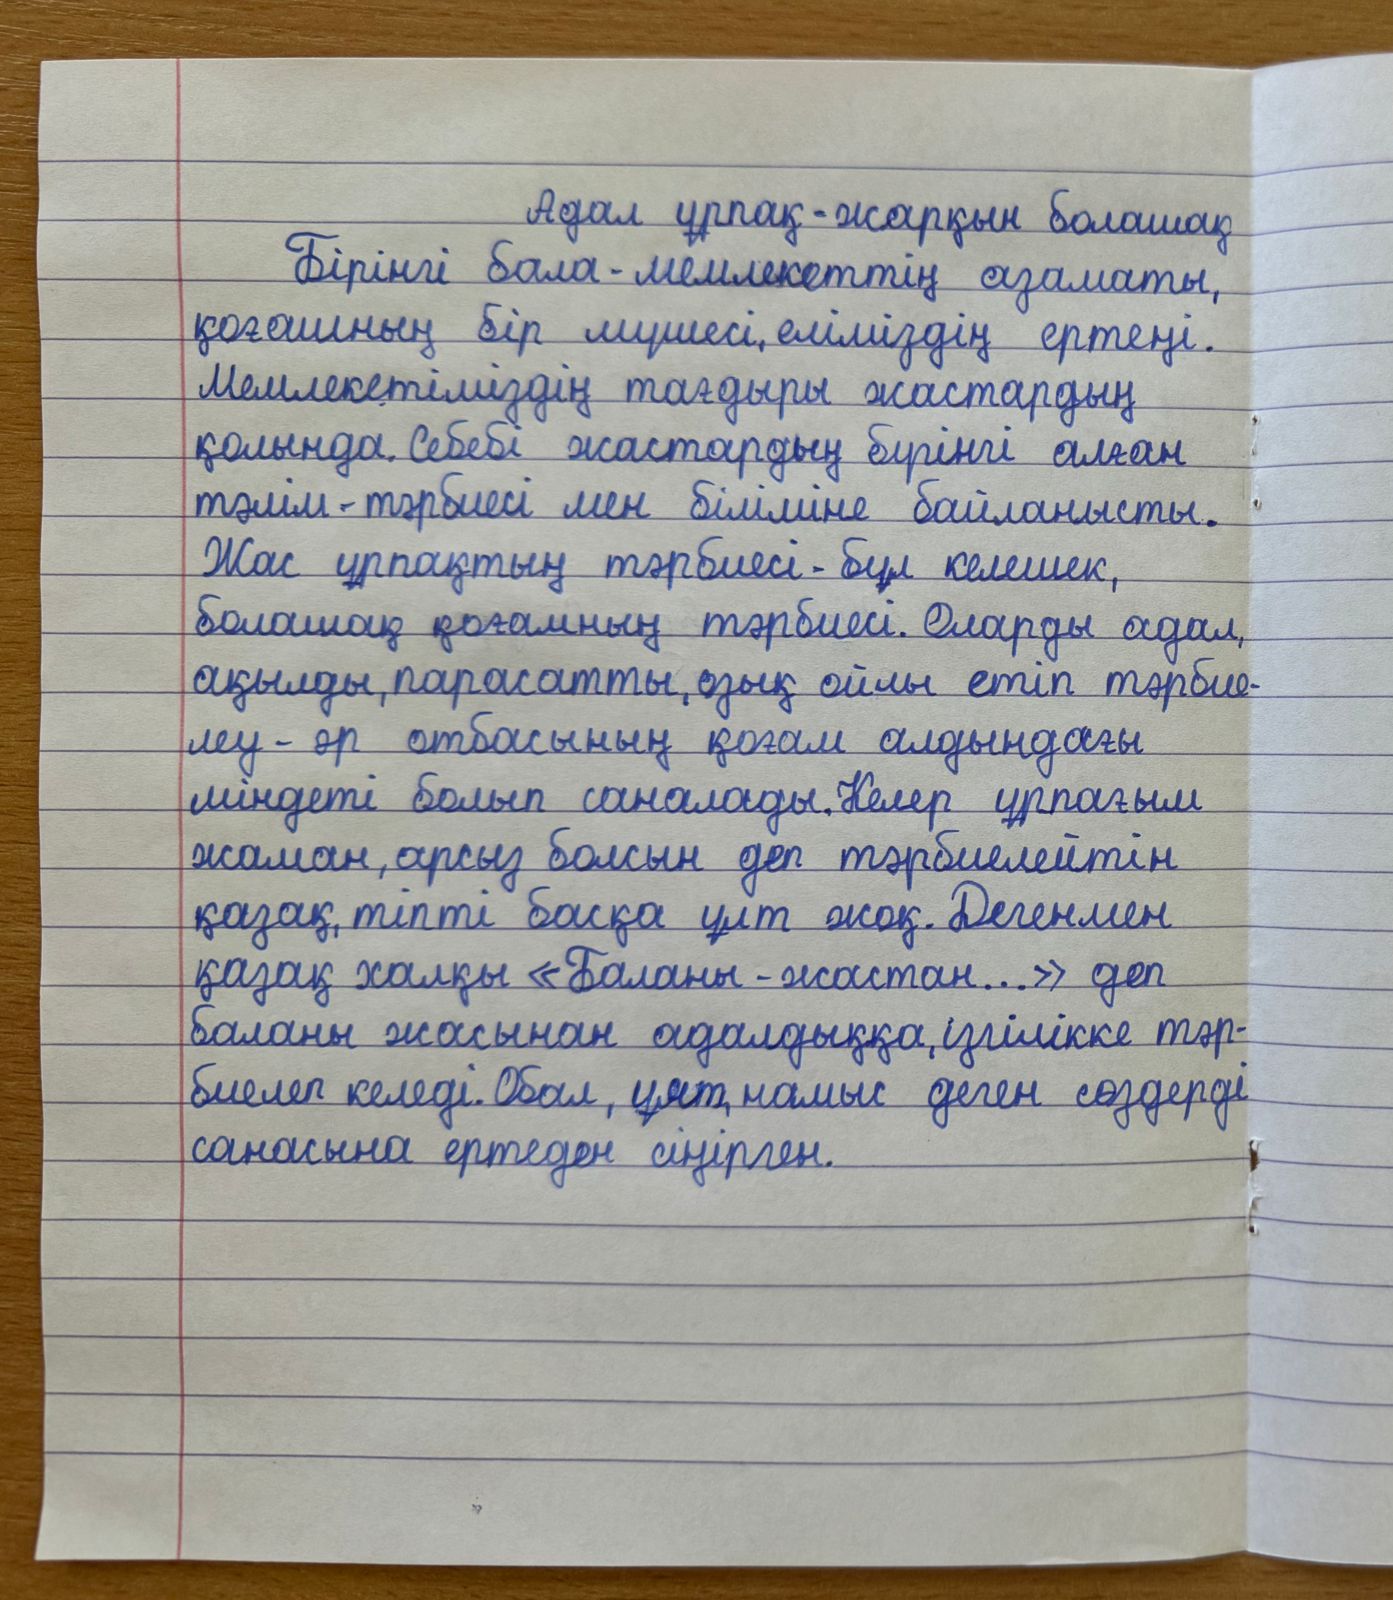 Адал ұрпақ-жарқын болашақ
Бірінгі бала-мемлекеттің азаматы,
қоғашның бір мүшесі, еліміздің ертеңі.
Мемлекетіміздің тағдыры жастардың
қолында. Себебі жастардың бүрінгі алған
тәлім-тәрбиесі мен біліміне байланысты.
Жас ұрпақтың тәрбиесі-бұл келешек,
болашақ қоғамның тәрбиесі. Оларды адал,
ақылды, парасатты, озық ойлы етіп тәрбие-
леу- әр отбасының қоғам алдындағы
міндеті болып саналады. Келер ұрпағым
жаман, арсыз болсын деп тәрбиелейтін
қазақ, тіпті басқа ұлт жоқ. Дегенмен
қазақ халқы «Баланы-жастан...» деп
баланы жасынан адалдыққа, ізгілікке тәр-
биелеп келеді. Обал, ұят, намыс деген сөздерді
санасына ертеден сіңірген.